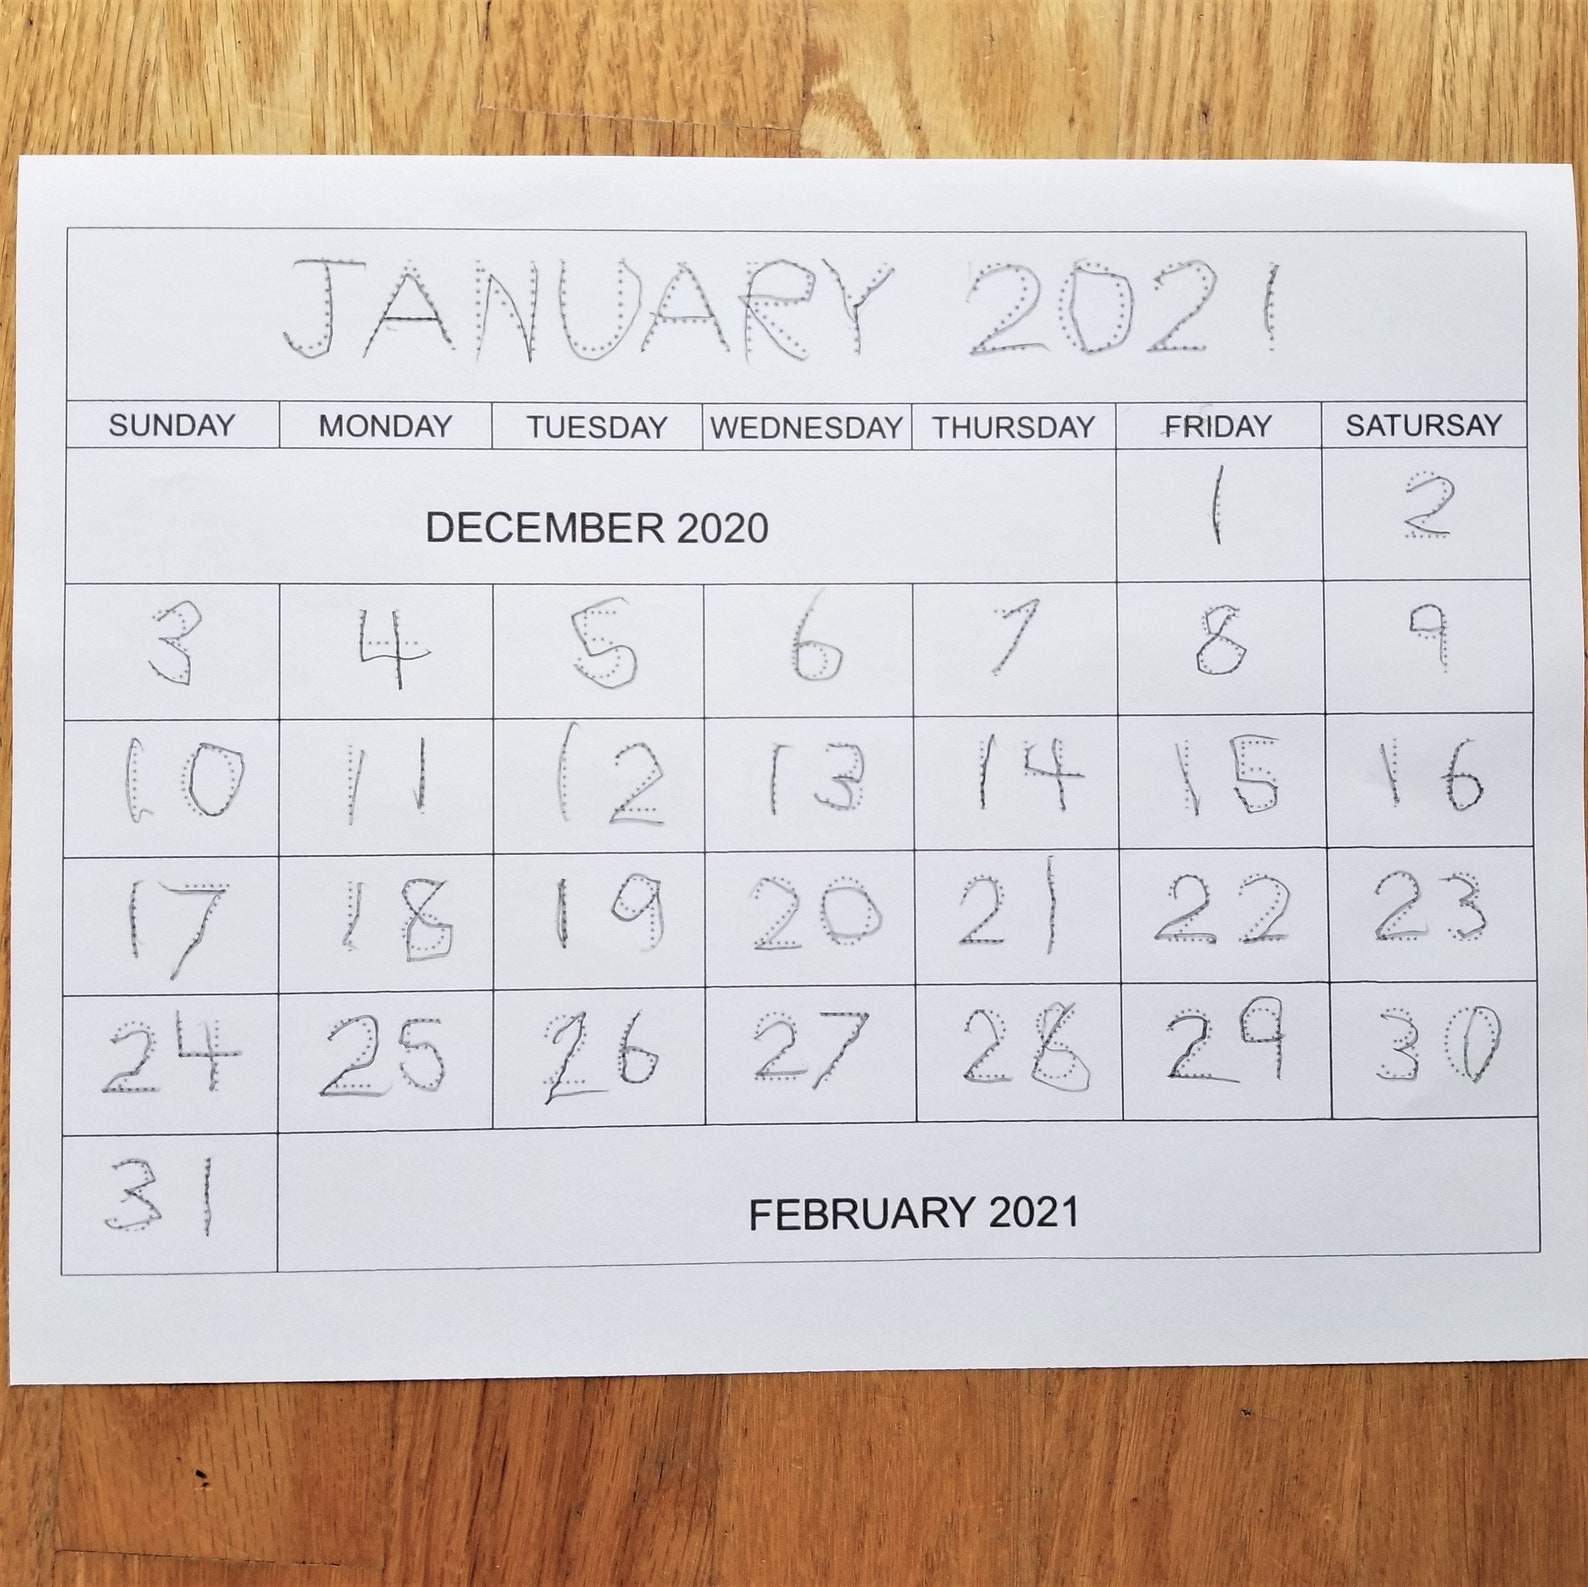 JANUARY 2021
SUNDAY MONDAY TUESDAY WEDNESDAY THURSDAY FRIDAY SATURSAY
DECEMBER 2020 1 2
3 4 5 6 7 8 9
10 11 12 13 14 15 16
17 18 19 20 21 22 23
24 25 26 27 28 29 30
31 FEBRUARY 2021